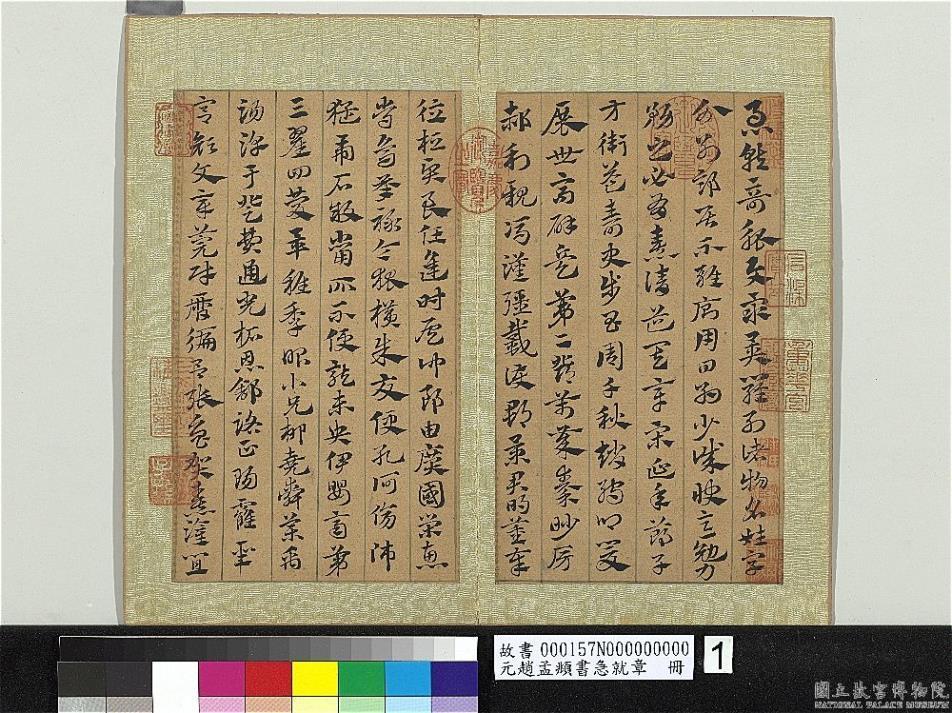 急就奇觚與衆異羅列諸物名姓字
分別部居不雜廁用日約少誠快意勉力
務之必有憙請道其章宋延年鄭子
方衛益壽史步昌周千秋趙孺卿爰
展世高辟兵第二鄧萬歲秦眇房
郝利親馮漢彊戴護郡景君明董奉
德桓賢良任逢時侯仲郎由廣國榮惠
常烏承祿令狐橫朱交便孔何傷師
猛虎石敢當所不侵龍未央伊嬰齊第
三翟回慶畢稚季昭小兄柳堯舜藥禹
湯淳于登費通光柘恩舒路正陽霍聖
宮顏文章莞財歷徧呂張魚賀憙灌宜
故書 000157N000000000
元趙孟頫書急就章 冊
1
國立故宮博物院
NATIONAL PALACE MUSEUM